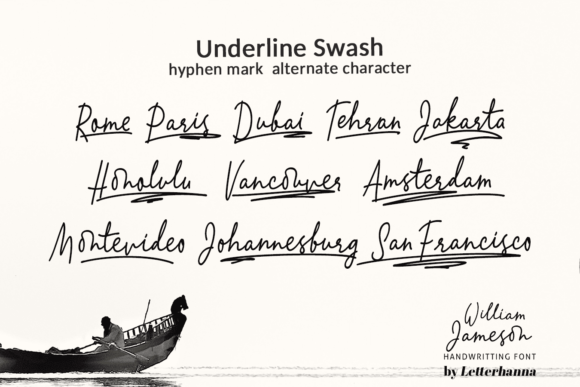 Underline Swash
hyphen mark alternate character
Rome Paris Dubai Tehran Jakarta
Honolulu Vancouver Amsterdam
Montevideo Johannesburg San Francisco
William
Jameson
HANDWRITTING FONT
by Letterhanna